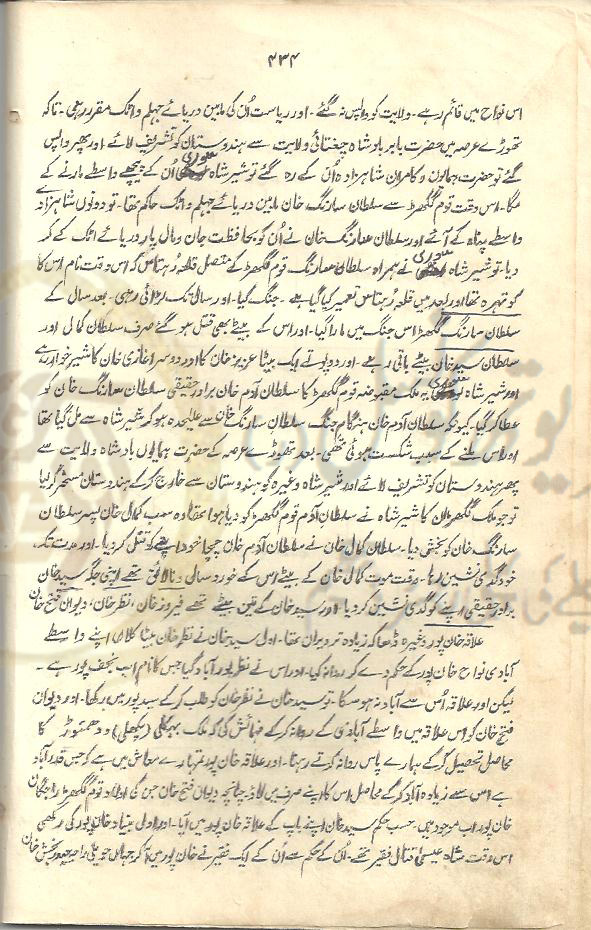 ۴۳۴
اس نواح میں قائم رہے۔ ولایت کو واپس نہ گئے۔ اور ریاست اُن کی مابین دریائے جہلم و اٹک مقرر رہی۔ تاکہ
تھوڑے عرصہ میں حضرت بابر بادشاہ چغتائی ولایت سے ہندوستان کو تشریف لائے اور پھر واپس
گئے تو حضرت ہمایوں و کامران شاہزادہ اُن کے رہ گئے تو شیر شاہ سوری اُن کے پیچھے واسطے مارنے کے
لگا۔ اس وقت قوم گکھڑ سے سلطان سارنگ خان مابین دریائے جہلم و اٹک حاکم تھا۔ تو دونوں شاہزاد
واسطے پناہ کے آئے اور سلطان سارنگ خان نے اُن کو بحافظت جان و مال پار دریائے اٹک کے کر
دیا۔ تو شیر شاہ سوری نے ہمراہ سلطان سارنگ قوم گکھڑ کے متصل قلعہ رہتاس کہ اس وقت نام اس کا
کو تہرہ تھا اور بعد میں قلعہ رہتاس تعمیر کیا گیا ہے۔ جنگ کیا۔ اور سال تک لڑائی رہی۔ بعد سال کے
سلطان سارنگ گکھڑ اس جنگ میں مارا گیا۔ اور اس کے بیٹے بھی قتل ہو گئے صرف سلطان کمال اور
سلطان سید خان بیٹے باقی رہے۔ اور دو پوتے ایک بیٹا عزیز خان کا اور دوسرا غازی خان کا شیر خوار رہے
اور شیر شاہ سوری یہ ملک مقبوضہ قوم گکھڑ کا سلطان آدم خان برادر حقیقی سلطان سارنگ خان کو
عطا کر گیا۔ کیونکہ سلطان آدم خان ہنگام جنگ سلطان سارنگ خان سے علیحدہ ہو کر شیر شاہ سے مل گیا تھا
اور اس ملنے کے سبب شکست ہوئی تھی۔ بعد تھوڑے عرصہ کے حضرت ہمایوں بادشاہ ولایت سے
پھر ہندوستان کو تشریف لائے اور شیر شاہ وغیرہ کو ہندوستان سے خارج کر کے ہندوستان مسخر کر لیا
تو جو ملک گکھڑان کا شیر شاہ نے سلطان آدم قوم گکھڑ کو دیا ہوا تھا وہ سب کمال خان پسر سلطان
سارنگ خان کو بخشی دیا۔ سلطان کمال خان نے سلطان آدم خان چچا خود اپنے کو قتل کر دیا۔ اور مدت تک
خود گدی نشین رہا۔ وقت موت کمال خان کے بیٹے اس کے خورد سالی و نالائق تھے اپنی جگہ سید خان
برادر حقیقی اپنے کو گدی نشین کر دیا۔ اور سید خان کے تین بیٹے تھے فیروز خان، نظر خان، دیوان فتح خان
علاقہ خان پور وغیرہ ڈھاکہ زیادہ تر ویران تھا۔ اول سید خان نے نظر خان بیٹا کلاں اپنے واسطے
آبادی نواح خان پور کے حکم دے کر روانہ کیا۔ اور اس نے نظر پور آباد کیا جس کا نام اب نجف پور ہے۔
لیکن اور علاقہ اُس سے آباد نہ ہو سکا۔ تو سید خان نے نظر خان کو طلب کر کے سید پور میں رکھا۔ اور دیوان
فتح خان کو اس علاقہ میں واسطے آبادی کے روانہ کر کے فہمائش کی کہ ملک بہکلی (پکھلی) و دھمتوڑ کا
محاصل تحصیل کر کے ہمارے پاس روانہ کرتے رہنا۔ اور علاقہ خان پور تمہارے معاش میں ہے کہ جس قدر آباد
ہے اس سے زیادہ آباد کر کے محاصل اس کا اپنے صرف میں لاؤ۔ چنانچہ دیوان فتح خان جن کی اولاد قوم گکھڑ راجگان
خان پور اب موجود ہیں۔ حسب حکم سید خان اپنے باپ کے علاقہ خان پور میں آیا۔ اور اول بنیاد خان پور کی رکھی
اس وقت شاہ عیسیٰ قتال فقیر تھے۔ اُن کے حکم سے اُن کے ایک فقیر نے خان پور میں آ کر جہاں حویلی راجہ حیدر بخش خان